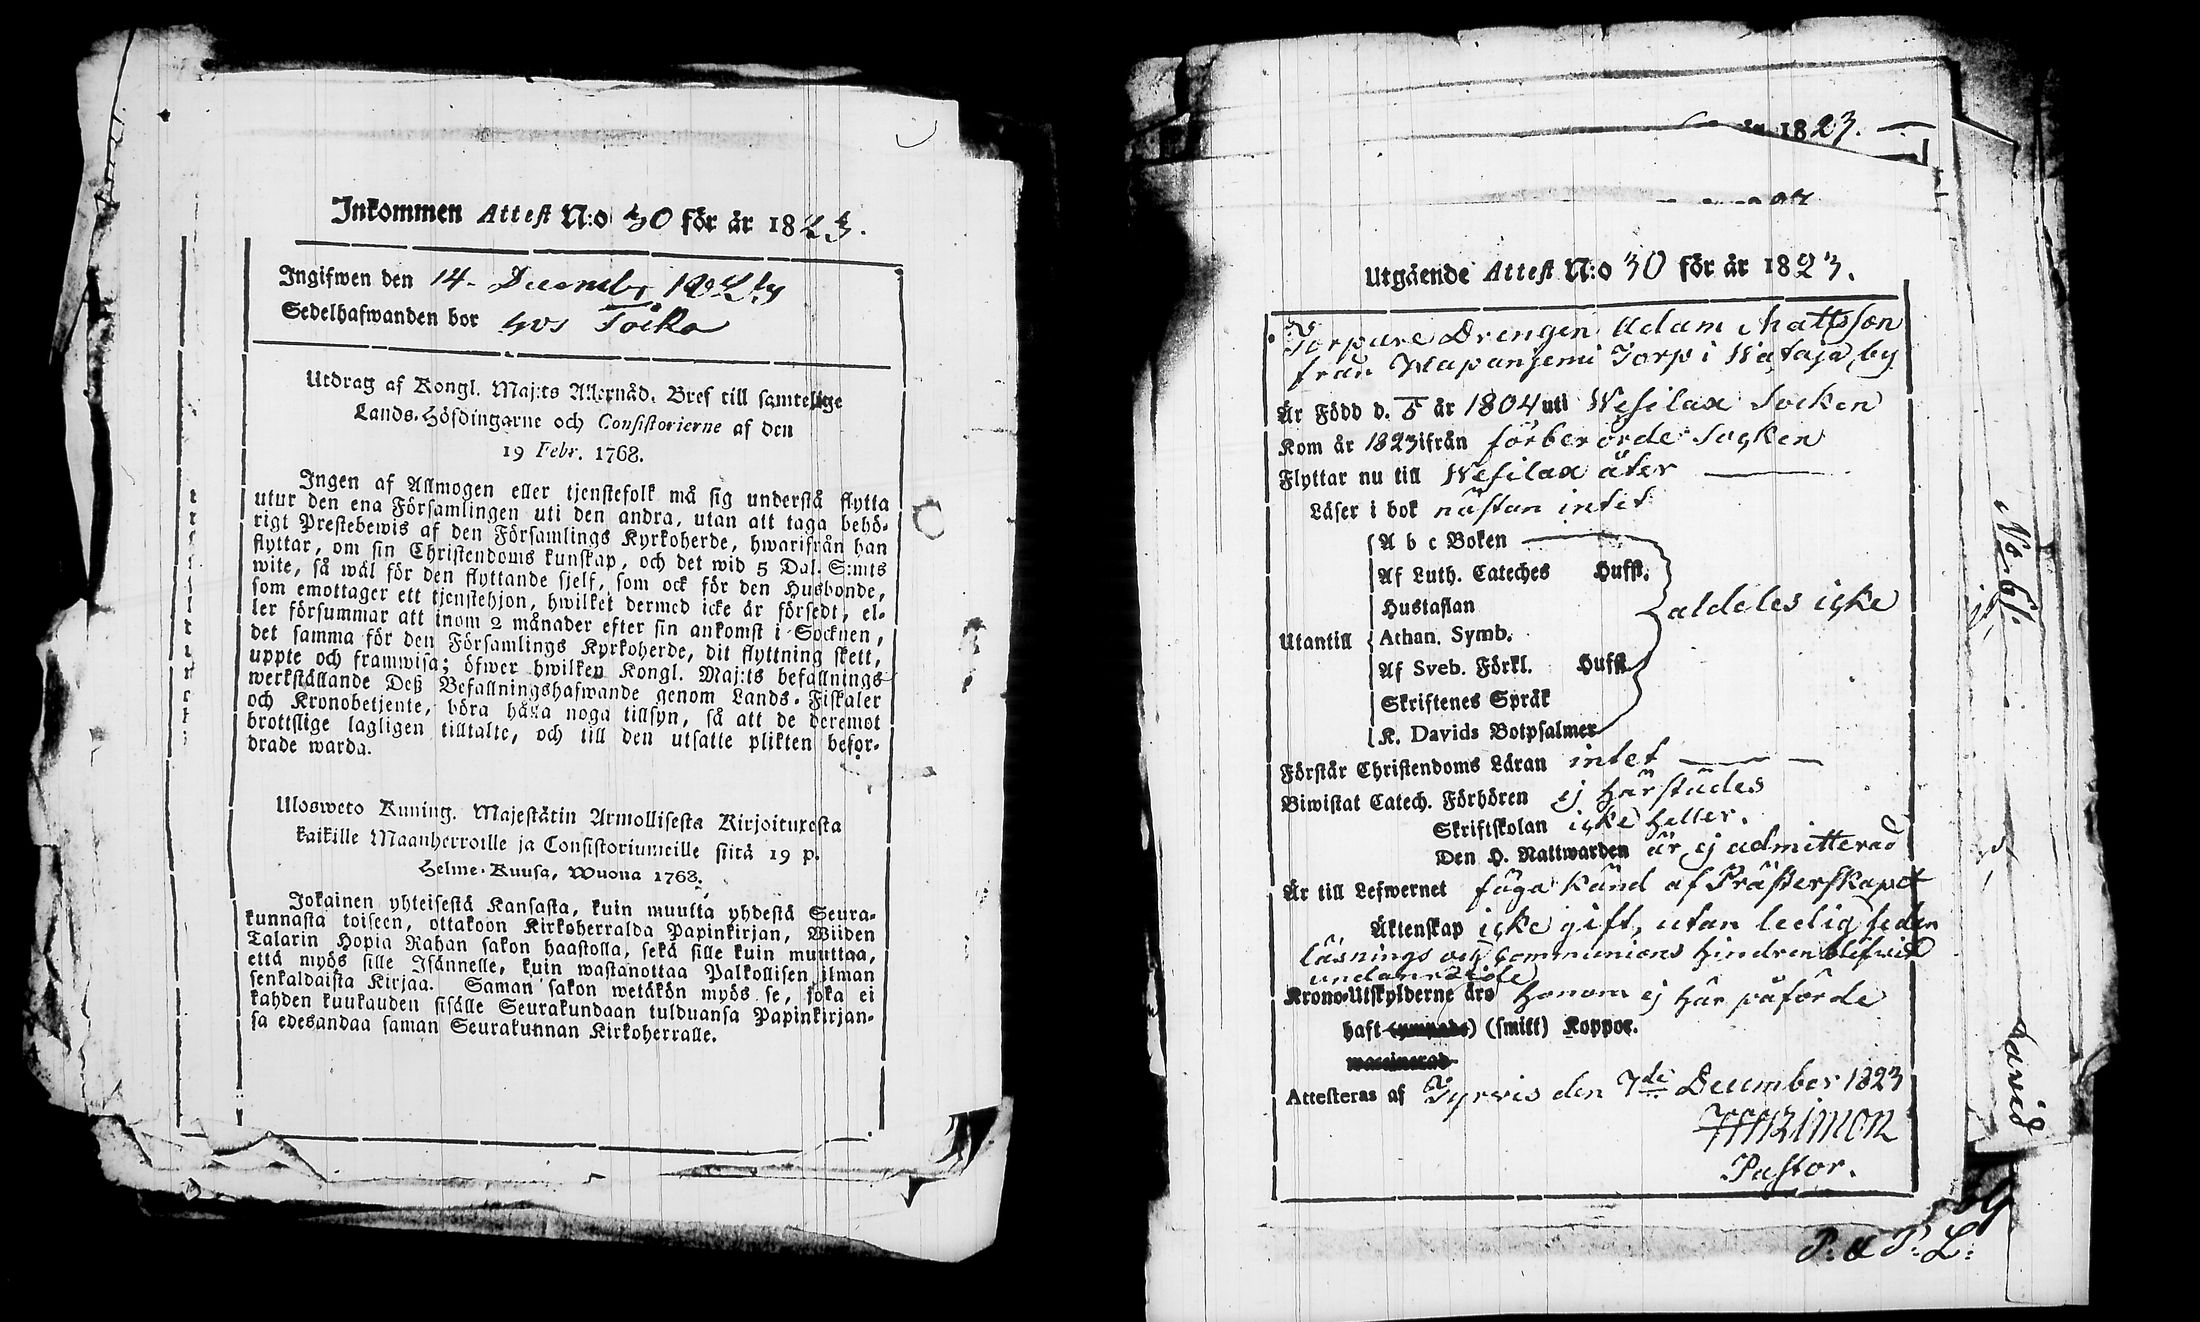 Inkommen Attest N:o 30 för år 1823.
Ingifwen den 14. December 1823
Sedelhafwanden bor hos Toika
Utdrag af Kongl. Maj:ts Allernåd. Bref till samtelige
Lands-Höfdingarne och Consistorierne af den
19 Febr. 1768.
Ingen af Allmogen eller tjenstefolk må sig understå flytta
utur den ena Församlingen uti den andra, utan att taga behö-
rigt Prestebewis af den Församlings Kyrkoherde, hwarifrån han
flyttar, om sin Christendoms kunskap, och det wid 5 Dal. S:mts
wite, så wäl för den flyttande sjelf, som ock för den Husbonde,
som emottager ett tjenstehjon, hwilket dermed icke är försedt, el-
ler försummar att inom 2 månader efter sin ankomst i Socknen,
det samma för den Församlings Kyrkoherde, dit flyttning skett,
uppte och framwisa; öfwer hwilken Kongl. Maj:ts befallnings
werkställande Deß Befallningshafwande genom Lands-Fiskaler
och Kronobetjente, böra hålla noga tillsyn, så att de deremot
brottslige lagligen tilltalte, och till den utsatte plikten befor-
drade warda.
Ulosweto Kuning. Majestätin Armollisesta Kirjoituxesta
kaikille Maanherroille ja Consistoriumeille siitä 19 p.
Helme-Kuusa, Wuona 1768.
Jokainen yhteisestä Kansasta, kuin muutta yhdestä Seura-
kunnasta toiseen, ottakoon Kirkoherralda Papinkirjan, Wiiden
Talarin Hopia Rahan sakon haastolla, sekä sille kuin muuttaa,
että myös sille Isännelle, kuin wastanottaa Palkollisen ilman
senkaldaista Kirjaa. Saman sakon wetäkön myös se, joka ei
kahden kuukauden sisälle Seurakundaan tulduansa Papinkirjan-
sa edesandaa saman Seurakunnan Kirkoherralle.
1823.
Utgående Attest N:o 30 för år 1823.
Torpare Drengen Adam Mattsson
från Haapaniemi Torp i Kataja by
Är Född d. 5 år 1804 uti Wesilax Socken
Kom år 1823 ifrån förberörde Socken
Flyttar nu till Wesilax åter
Läser i bok nästan intet
A b c Boken
Af Luth. Cateches Hufst.
Hustaflan
aldeles icke
Utantill Athan. Symb.
Af Sveb. Förkl. Hufst.
Skriftenes Språk
K. Davids Botpsalmer
Förstår Christendoms Läran intet
Biwistat Catech. Förhören ej härstädes
Skriftskolan icke heller.
Den H. Nattwarden är ej admitterad
Är till Lefwernet föga känd af Prästerskapet
Äktenskap icke gift, utan ledig sedan
läsnings och Communions hindren blifwit
undanröjde
Krono-Utskylderne äro honom ej här påförde
haft (ympade) (smitt) Koppor.
waccinerad
Attesteras af Tyrvis den 7de December 1823
Pastor.
No 61.
David
39
P: A P: L: